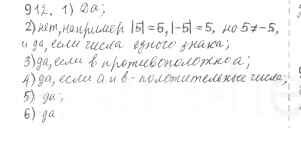 912. 1) Да;
2) нет, например |5| = 5, |-5| = 5, но 5 ≠ -5,
и да, если числа одного знака;
3) да, если в противоположно а;
4) да, если а и в - положительные числа;
5) да;
6) да